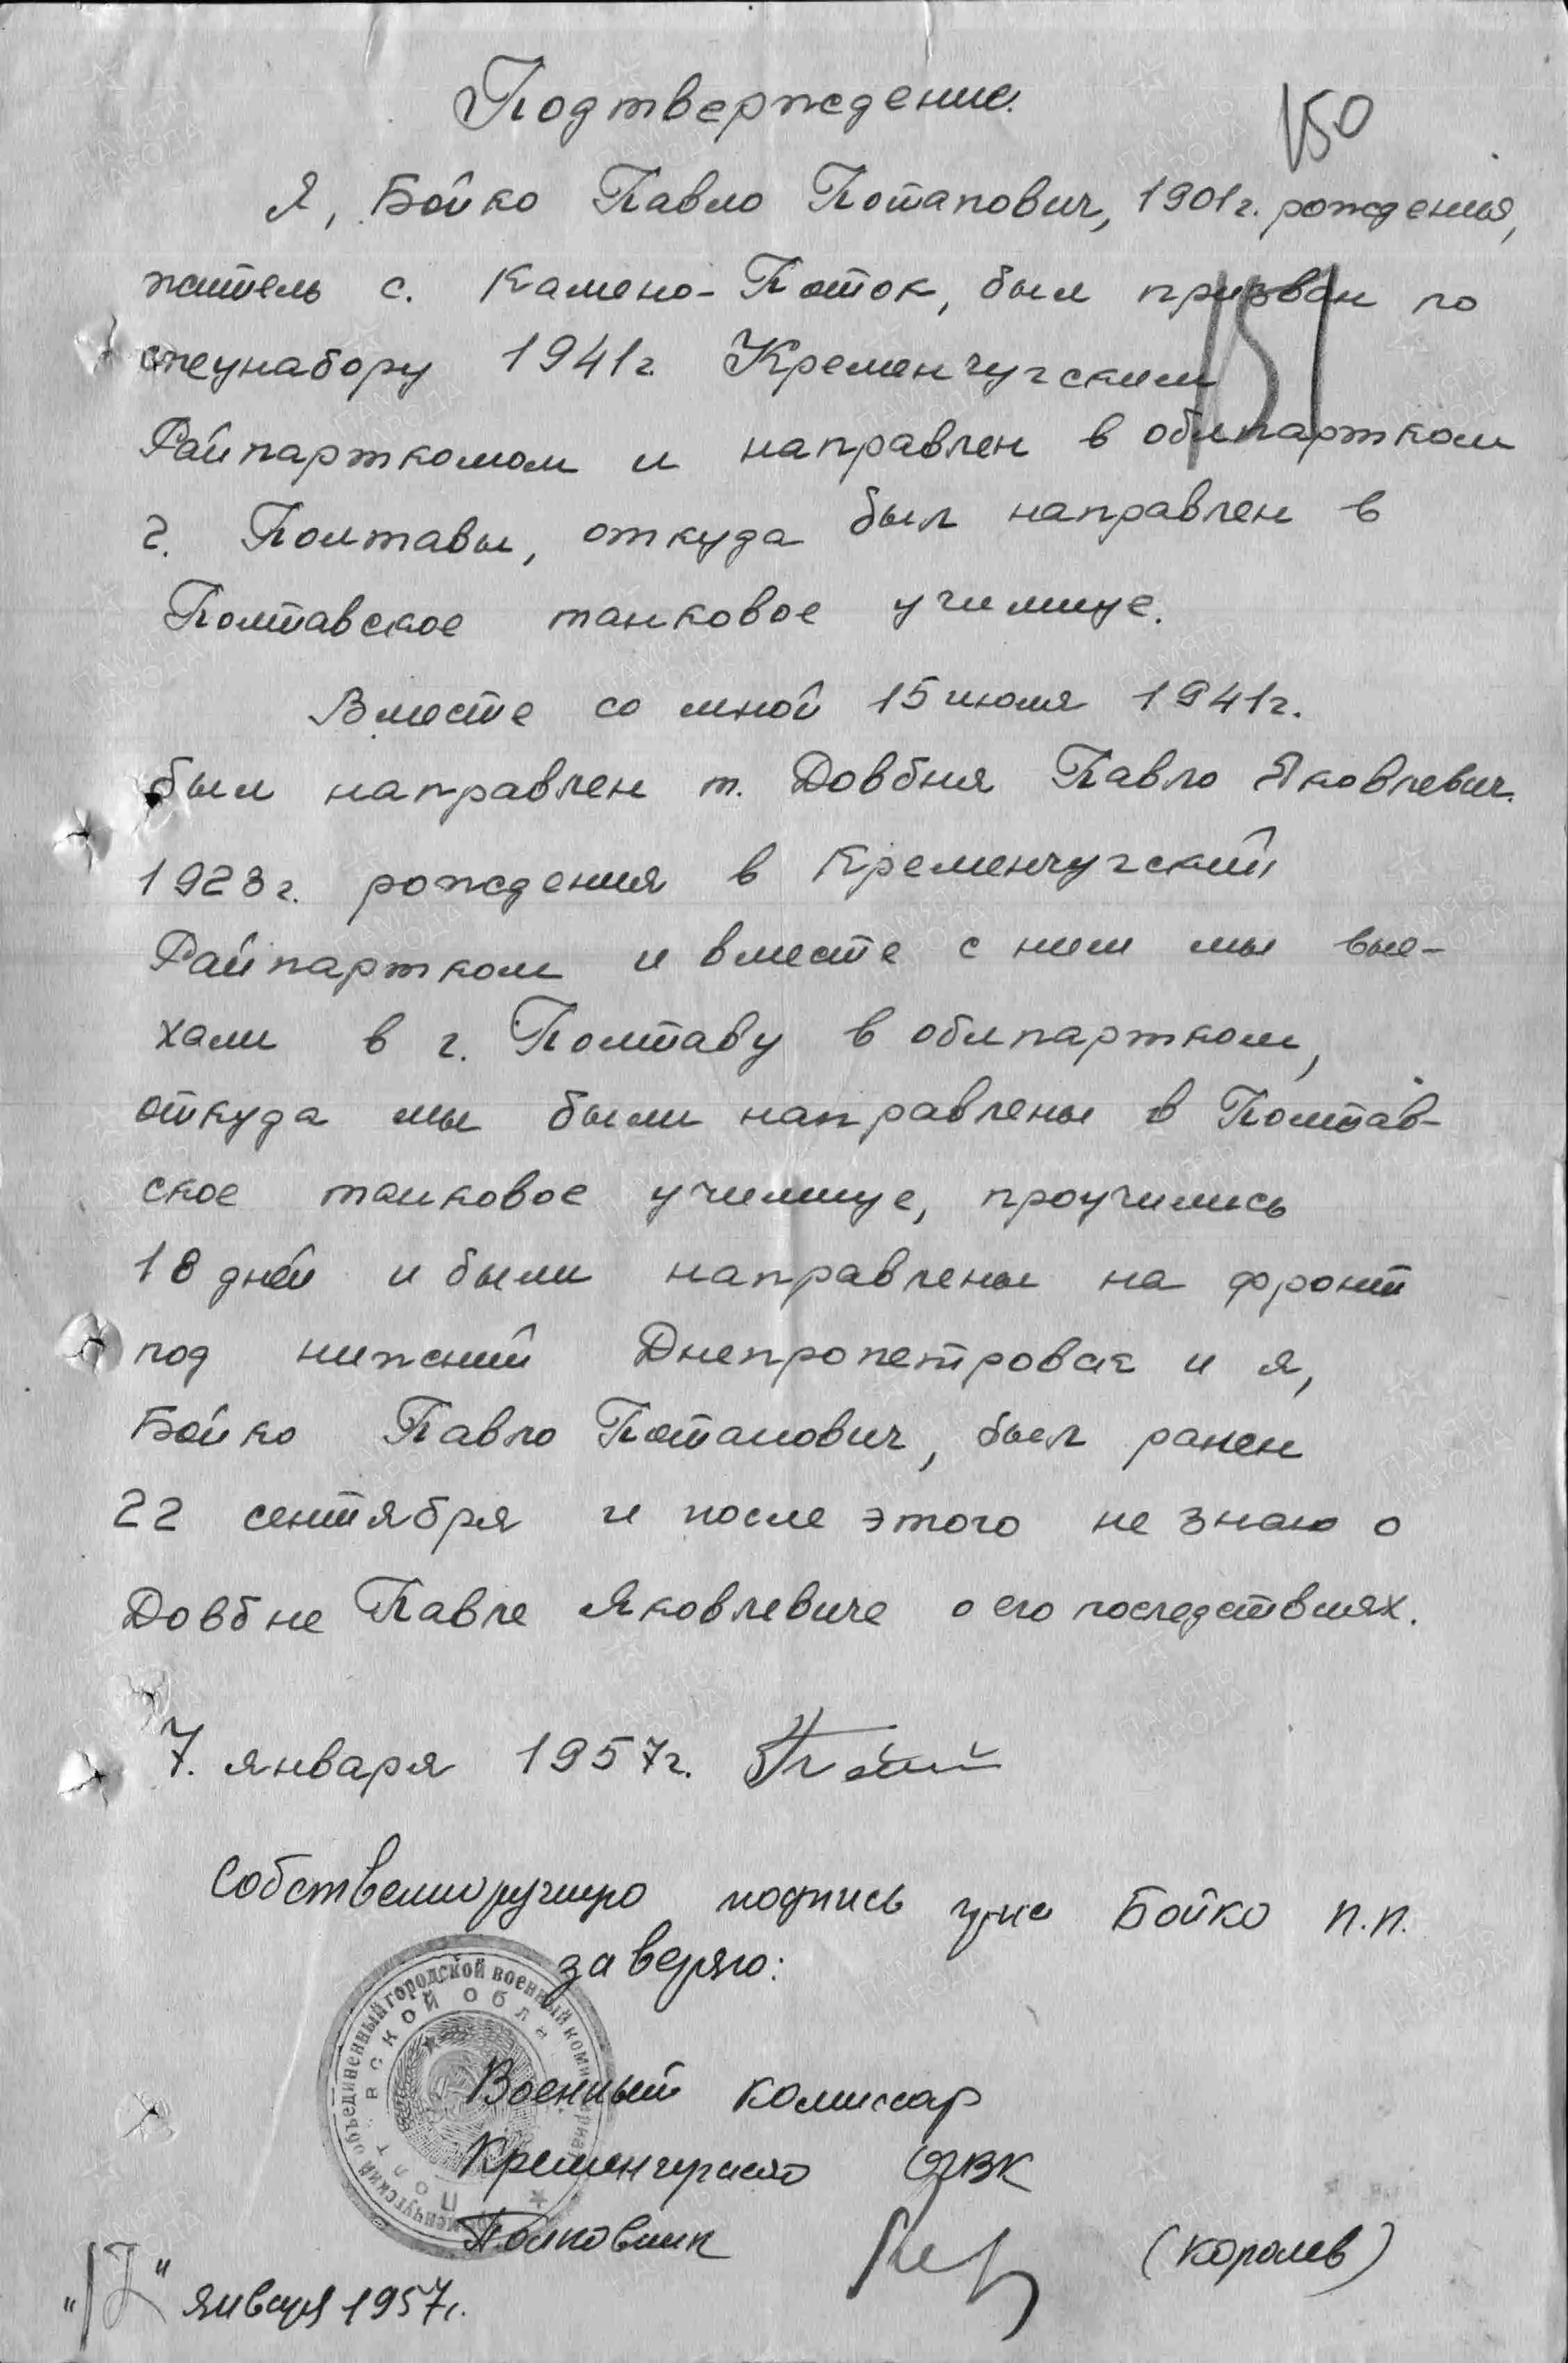 Подтверждение.
150
Я, Бойко Павло Потапович, 1901г. рождения,
житель с. Камено-Поток, был призван по
151
спецнабору 1941г. Кременчугским
Райпарткомом и направлен в облпартком
г. Полтавы, откуда был направлен в
Полтавское танковое училище.
Вместе со мной 15 июля 1941г.
был направлен т. Довбня Павло Яковлевич
1923г. рождения в Кременчугский
Райпартком и вместе с ним мы вые-
хали в г. Полтаву в облпартком,
откуда мы были направлены в Полтав-
ское танковое училище, проучились
18 дней и были направлены на фронт
под нижний Днепропетровск и я,
Бойко Павло Потапович, был ранен
22 сентября и после этого не знаю о
Довбне Павле Яковлевиче о его последствиях.
7. января 1957г.
Собственноручную подпись гр-на Бойко П.П.
заверяю:
Кременчугский объединенный городской военный комиссариат
Полтавской обл
Военный комиссар
Кременчугского ОГВК
Полковник (Королев)
"17" января 1957г.